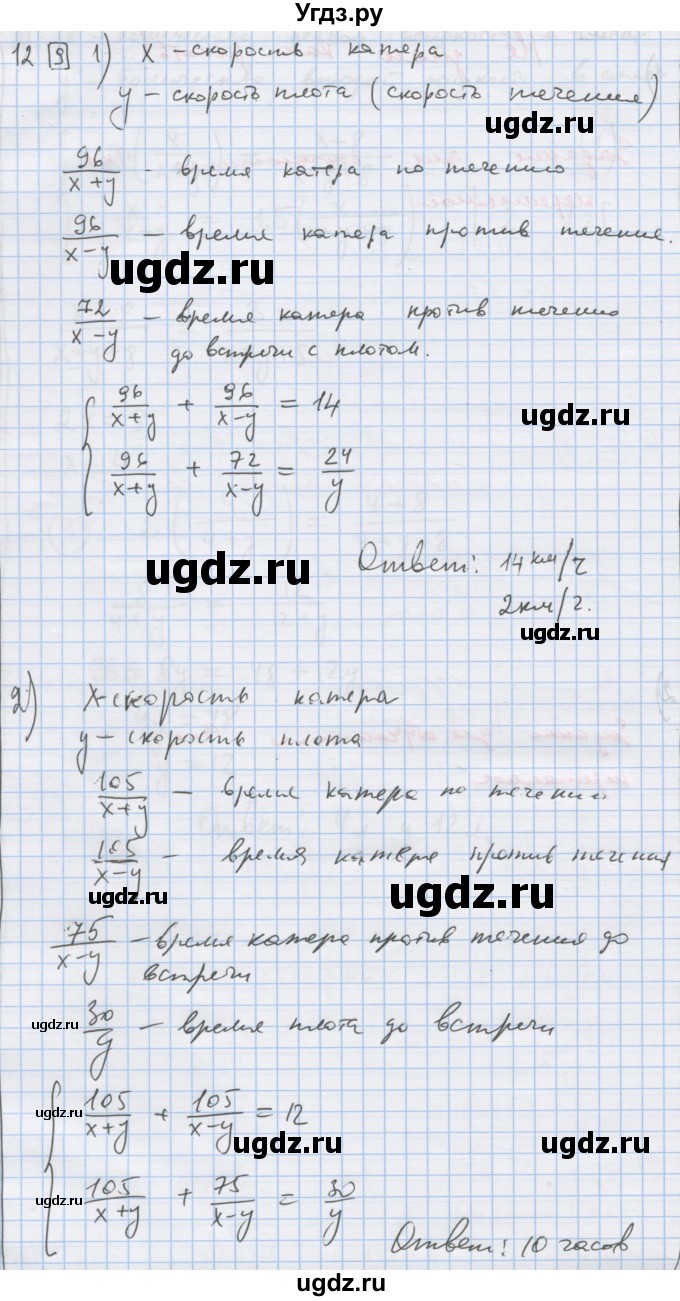 Угдз.ру
12 [9] 1) x – скорость катера
y – скорость плота (скорость течения)
ugdz.ru
96/(x+y) – время катера по течению
96/(x-y) – время катера против течение.
ugdz.ru
72/(x-y) – время катера против течению
до встречи с плотом.
{ 96/(x+y) + 96/(x-y) = 14
ugdz.ru
96/(x+y) + 72/(x-y) = 24/y
ugdz.ru
Ответ: 14 км/ч
2 км/ч.
ugdz.ru
2) x – скорость катера
y – скорость плота
105/(x+y) – время катера по течению
105/(x-y) – время катере против течения
ugdz.ru
ugdz.ru
75/(x-y) – время катера против течения до
встречи
ugdz.ru
30/y – время плота до встречи
ugdz.ru
{ 105/(x+y) + 105/(x-y) = 12
ugdz.ru
ugdz.ru
ugdz.ru
105/(x+y) + 75/(x-y) = 30/y
Ответ: 10 часов
ugdz.ru